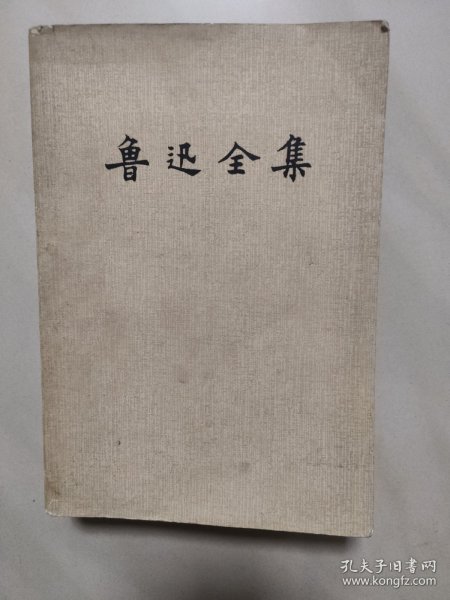 鲁迅全集
孔夫子旧书网
www.kongfz.com